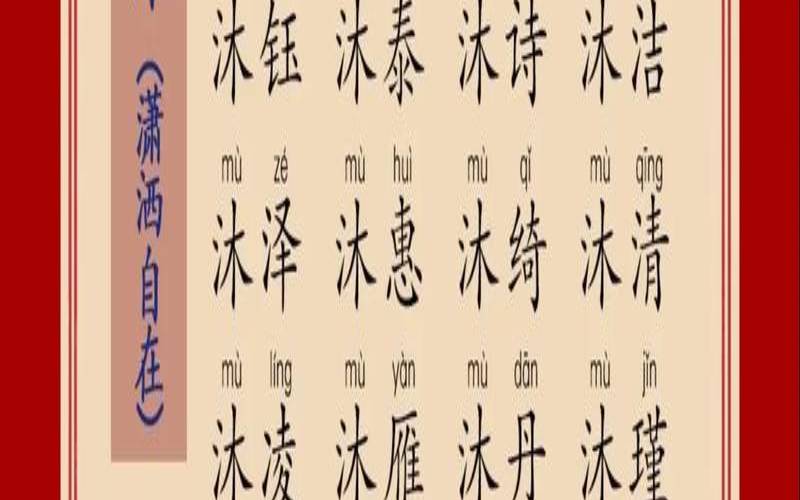 （潇洒自在）
沐钰 沐泰 沐诗 沐洁
mù zé mù huì mù qǐ mù qīng
沐泽 沐惠 沐绮 沐清
mù líng mù yàn mù dān mù jǐn
沐凌 沐雁 沐丹 沐瑾